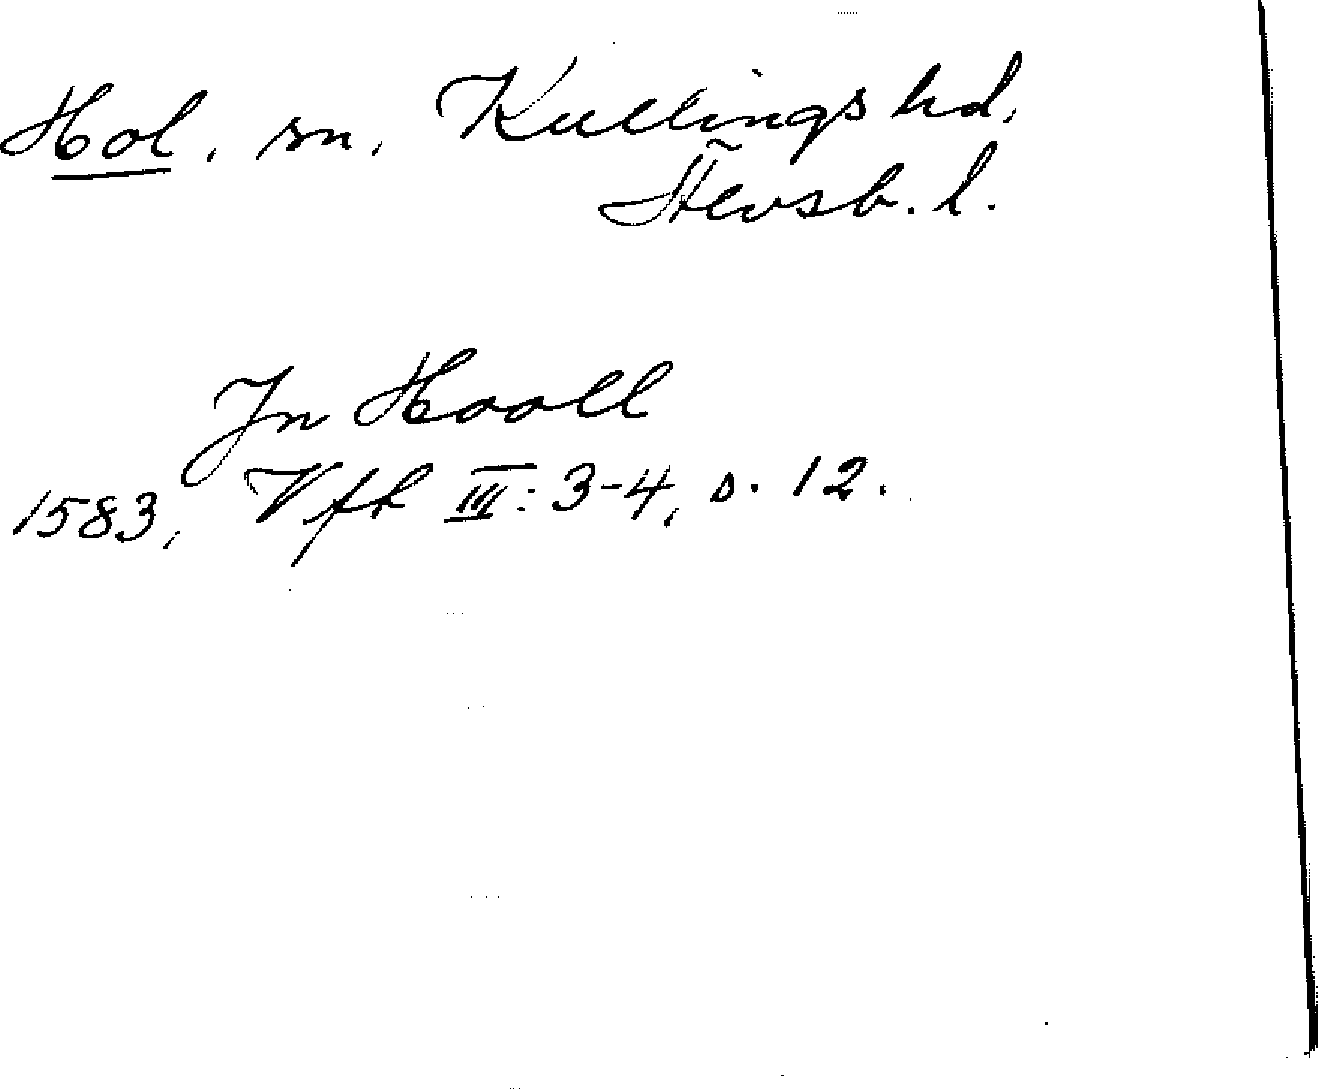 Hol. sn. Kullings hd.
Älvsb. l.
Jn Hooll
1583, Vfh III: 3-4, s. 12.